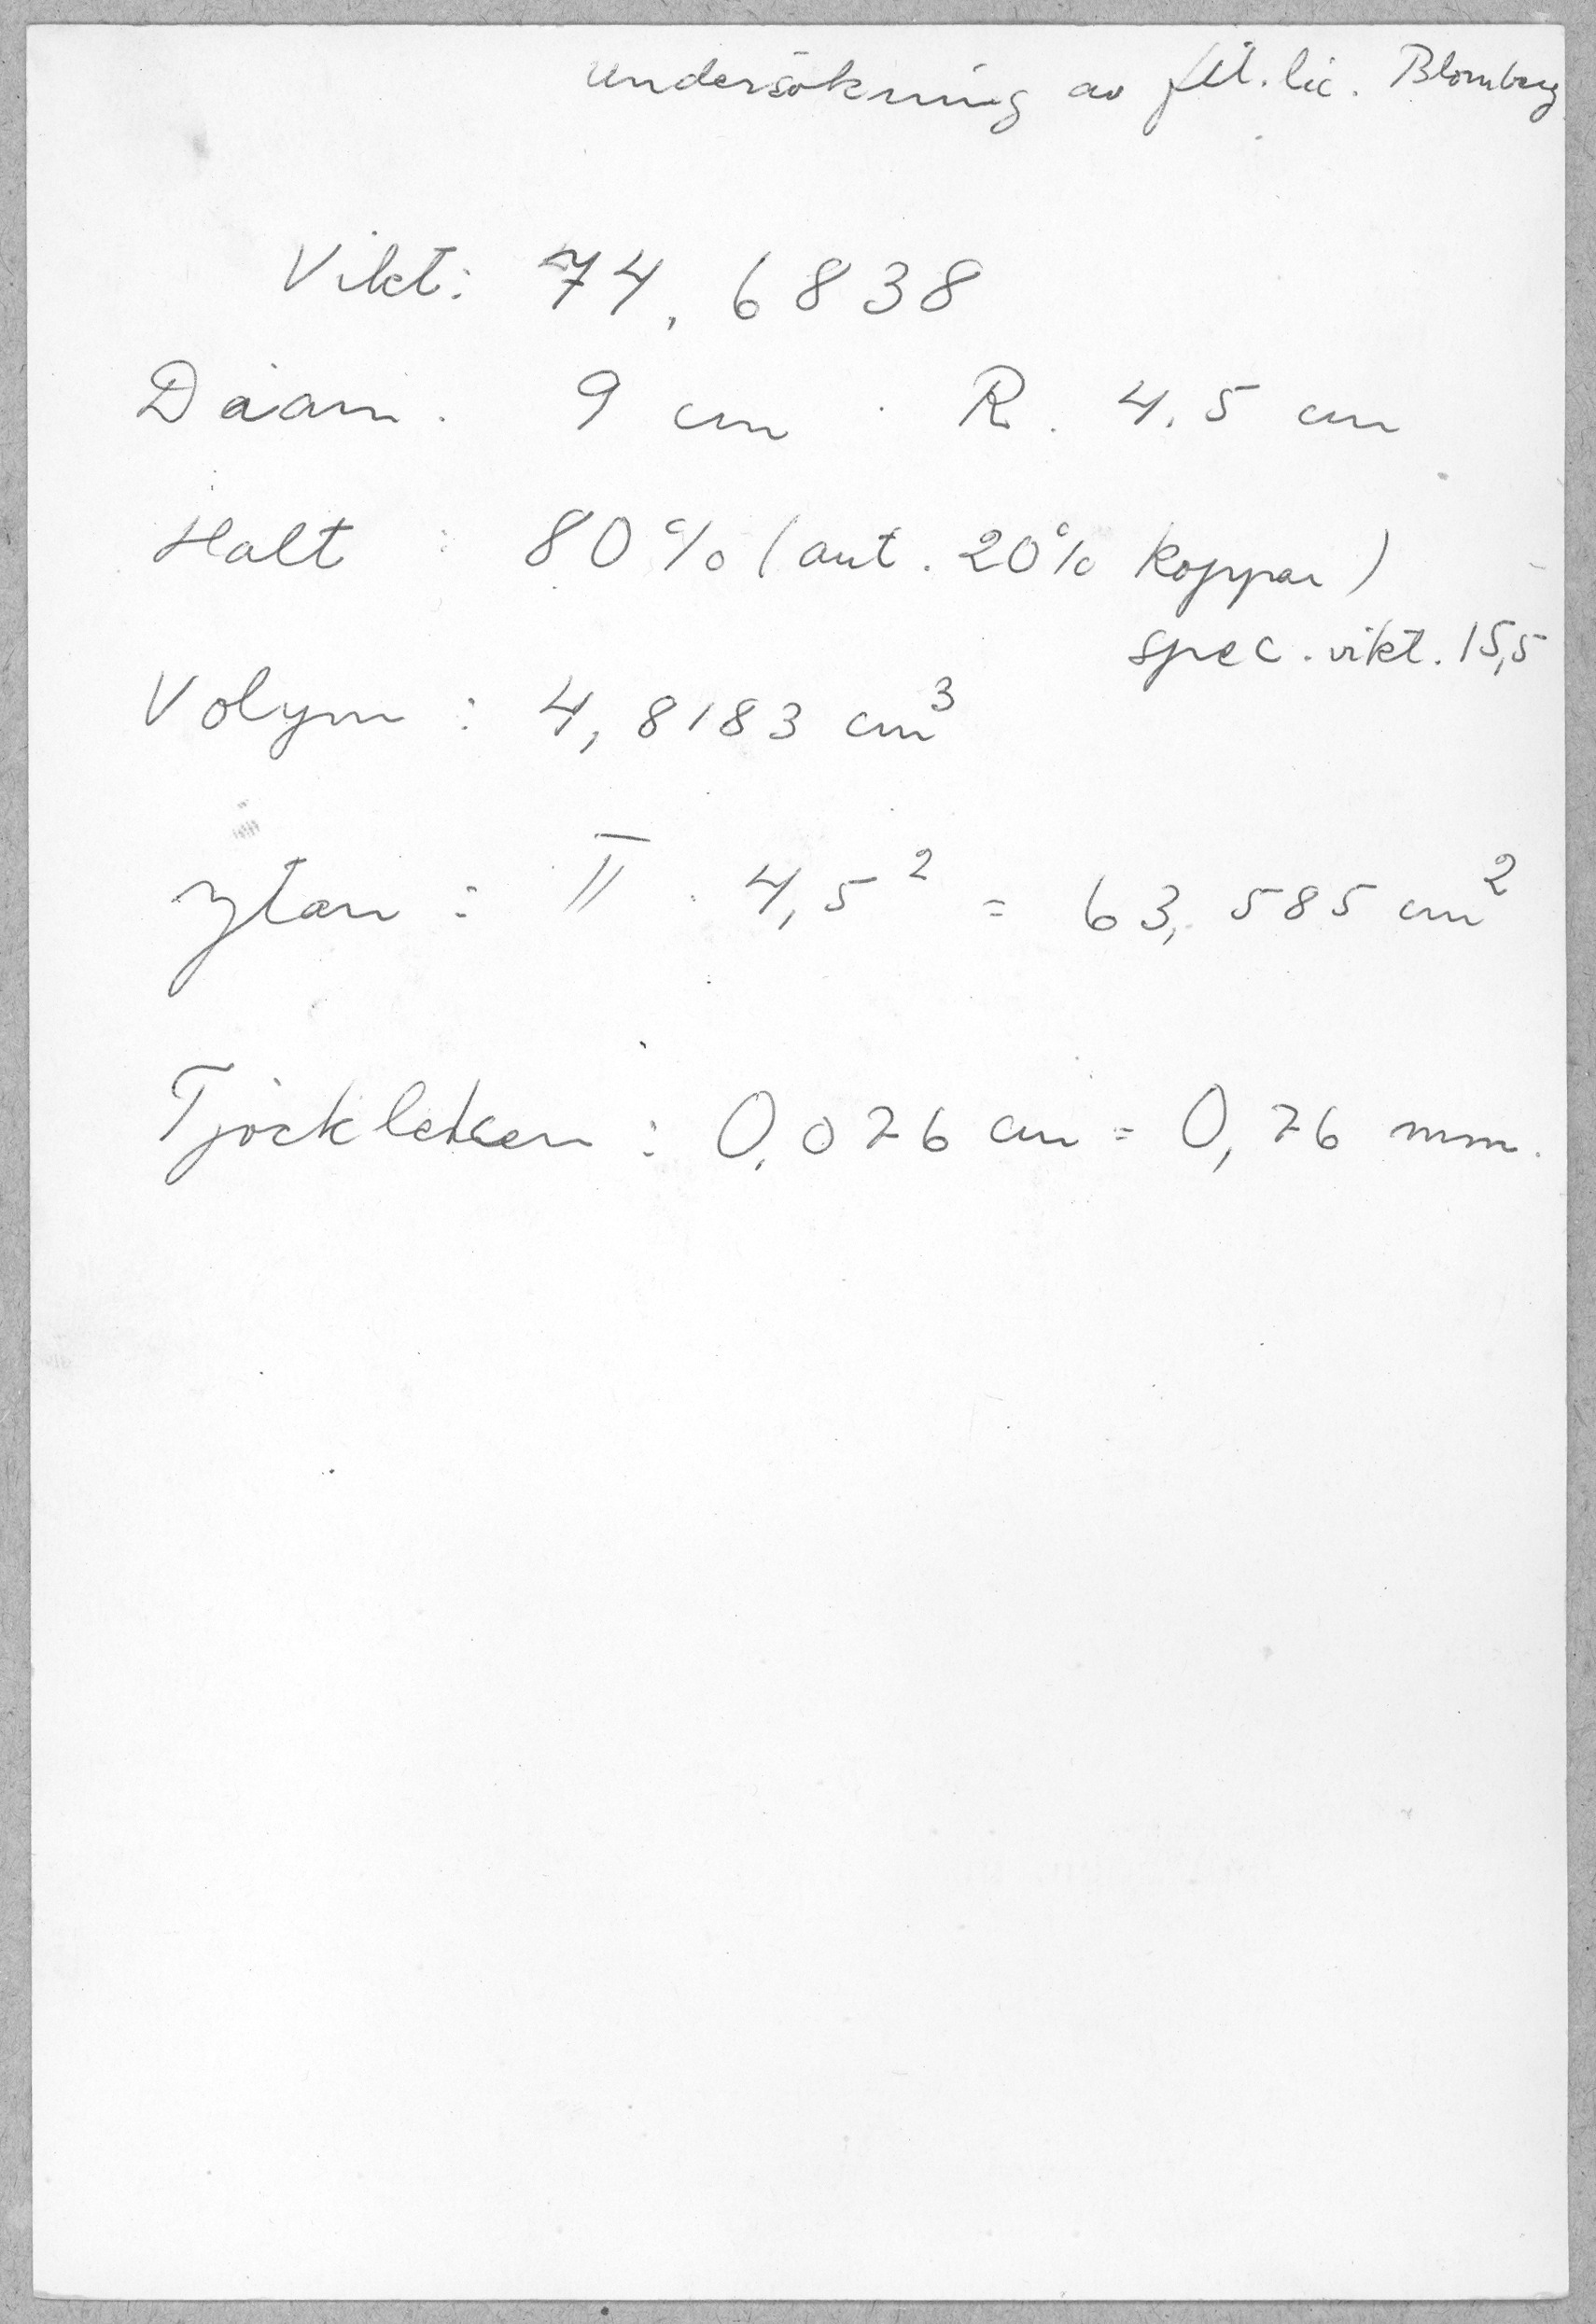 undersökning av fil.lic. Blomberg
Vikt: 74,6838
Diam. 9 cm R. 4,5 cm
Halt : 80% (ant. 20% koppar)
spec. vikt. 15,5
Volym : 4,8183 cm³
ytan : π · 4,5² = 63,585 cm²
Tjockleken : 0,076 cm = 0,76 mm.